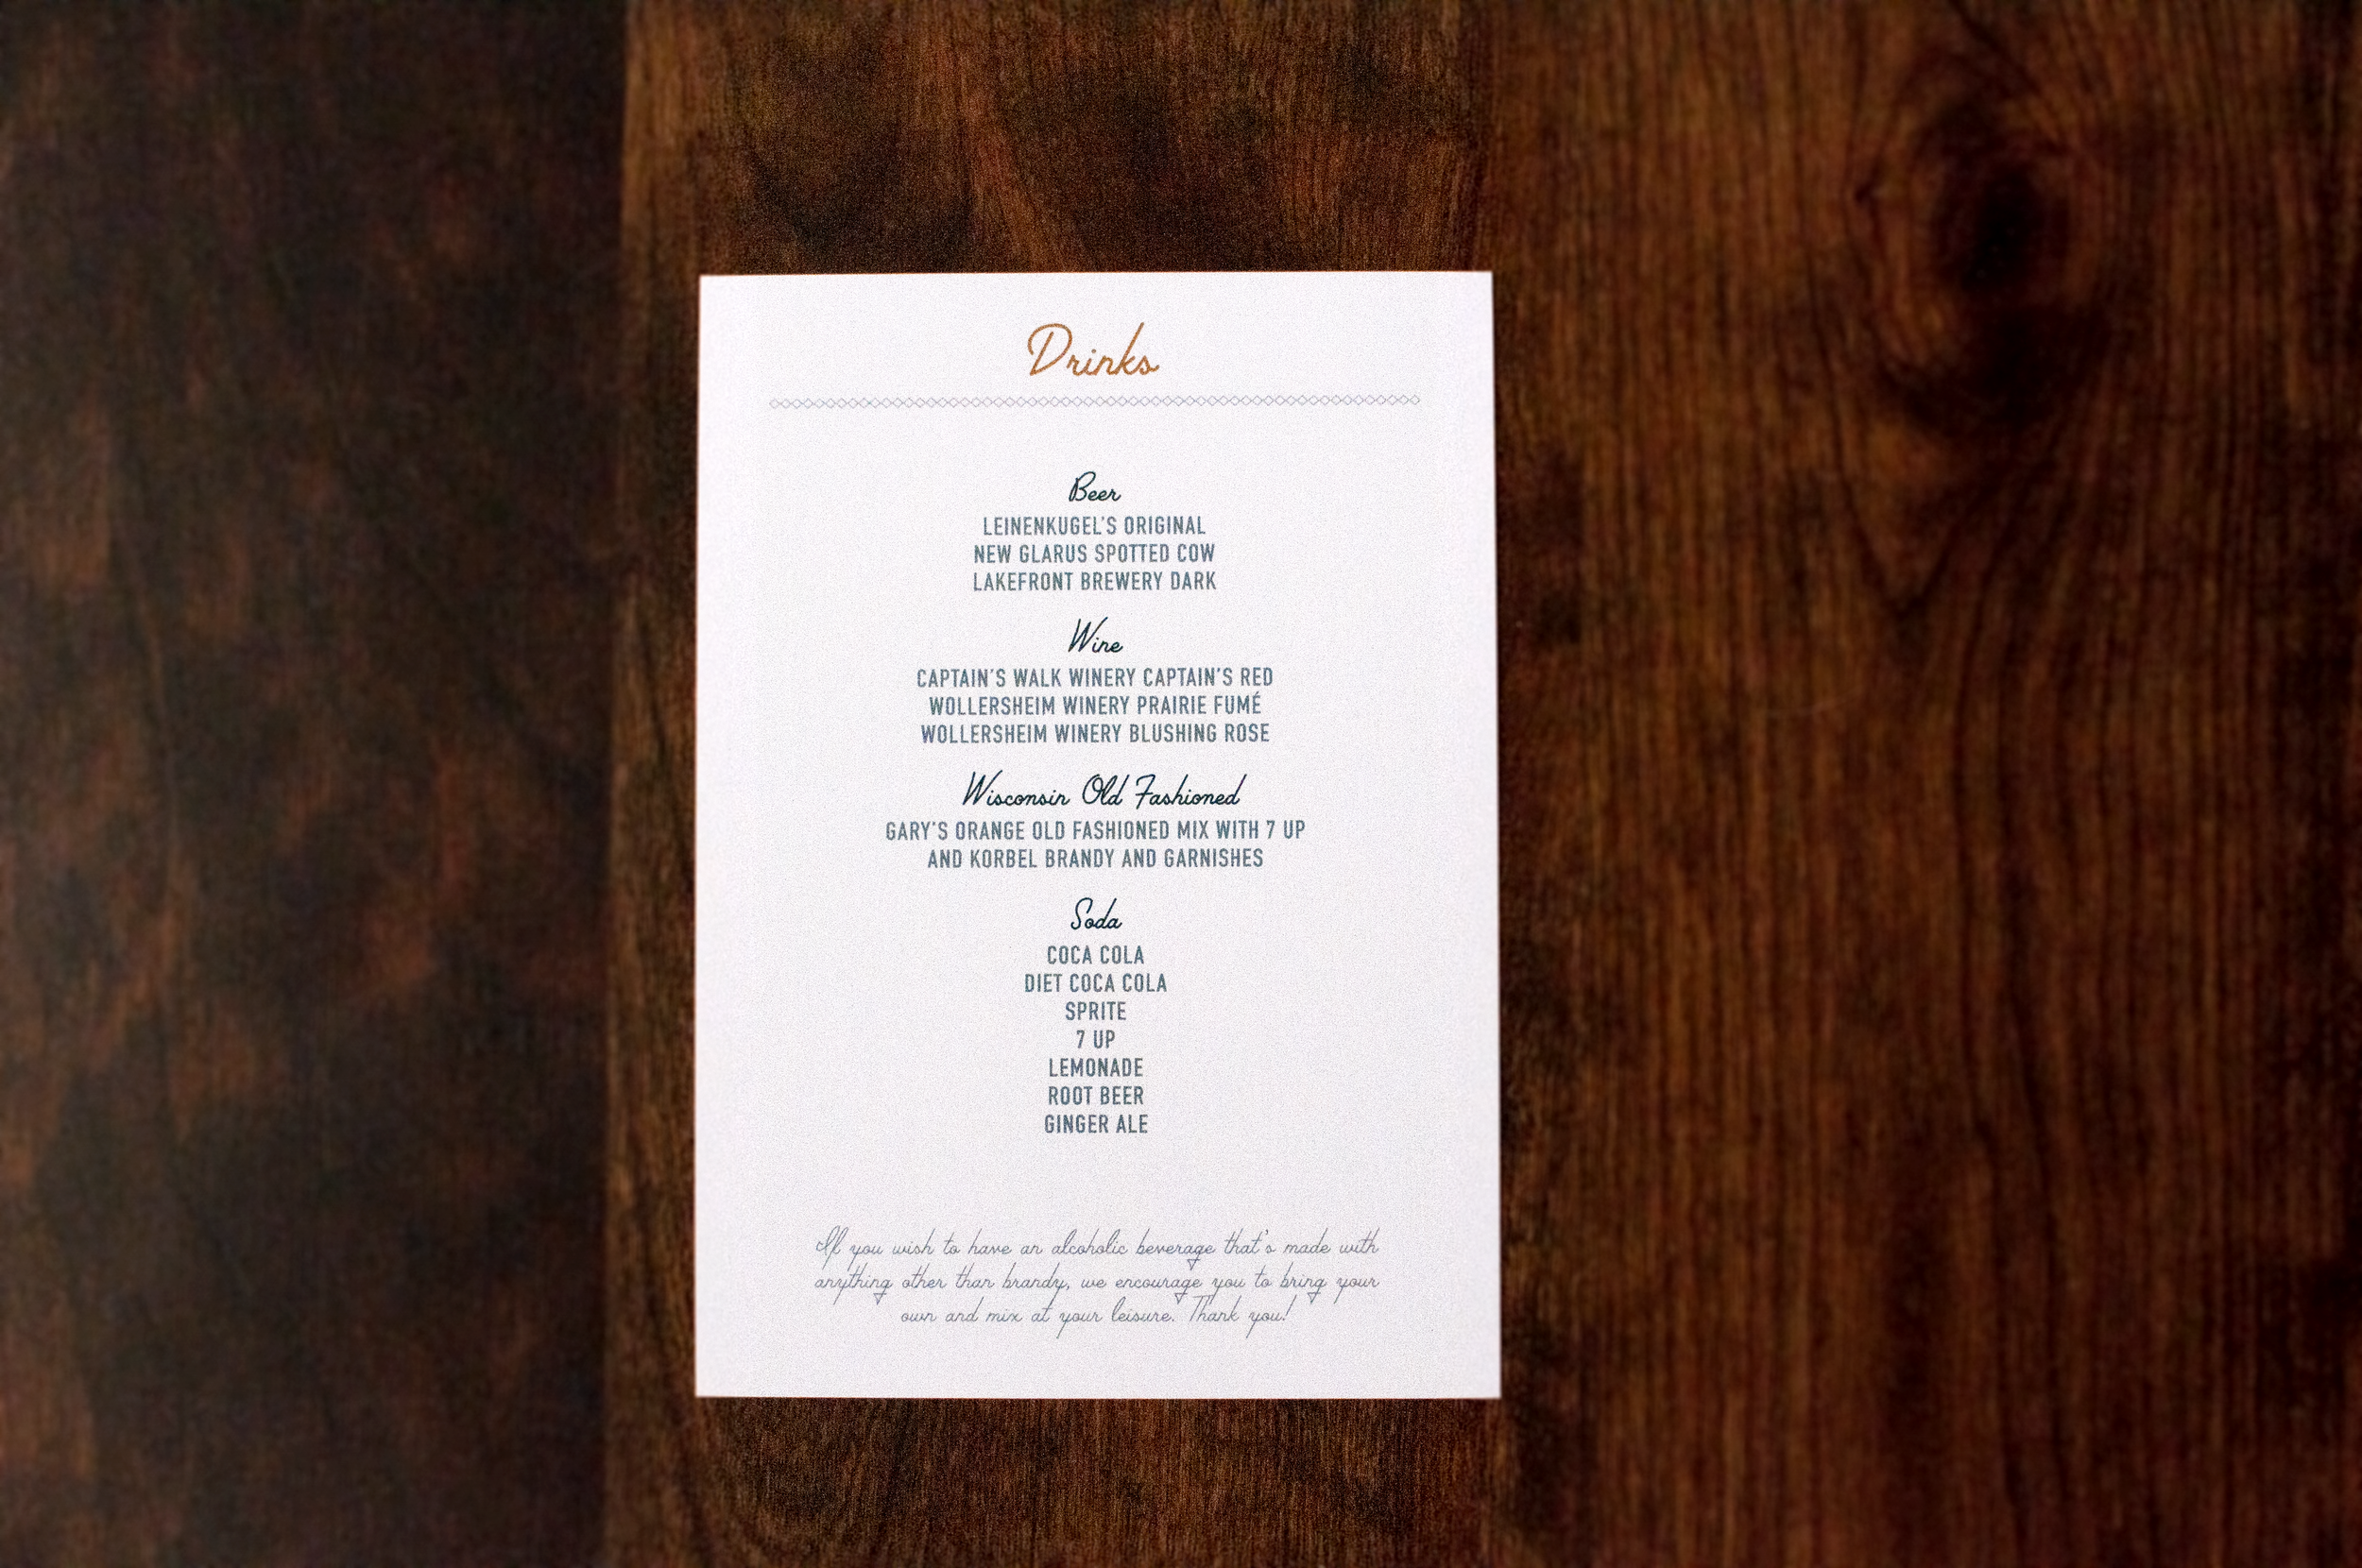 Drinks
Beer
LEINENKUGEL'S ORIGINAL
NEW GLARUS SPOTTED COW
LAKEFRONT BREWERY DARK
Wine
CAPTAIN'S WALK WINERY CAPTAIN'S RED
WOLLERSHEIM WINERY PRAIRIE FUMÉ
WOLLERSHEIM WINERY BLUSHING ROSE
Wisconsin Old Fashioned
GARY'S ORANGE OLD FASHIONED MIX WITH 7 UP
AND KORBEL BRANDY AND GARNISHES
Soda
COCA COLA
DIET COCA COLA
SPRITE
7 UP
LEMONADE
ROOT BEER
GINGER ALE
If you wish to have an alcoholic beverage that's made with
anything other than brandy, we encourage you to bring your
own and mix at your leisure. Thank you!